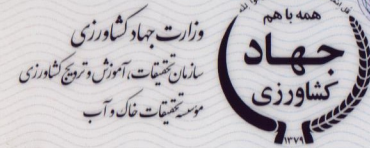 وزارت جهاد کشاورزی
سازمان تحقیقات، آموزش و ترویج کشاورزی
مؤسسه تحقیقات خاک و آب
همه با هم
جهاد
کشاورزی
۱۳۷۹